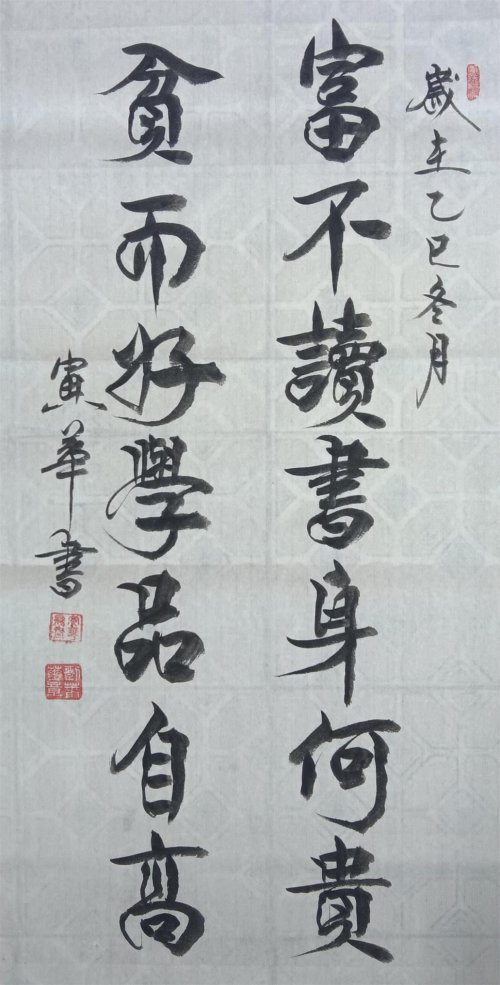 歲主乙巳冬月
富不讀書身何貴
貧而好學品自高
寅華書